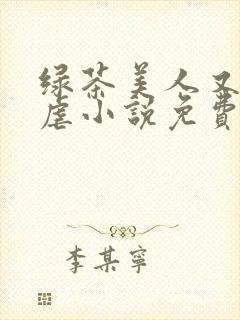 绿茶美人又
虐小説免費
李某寧